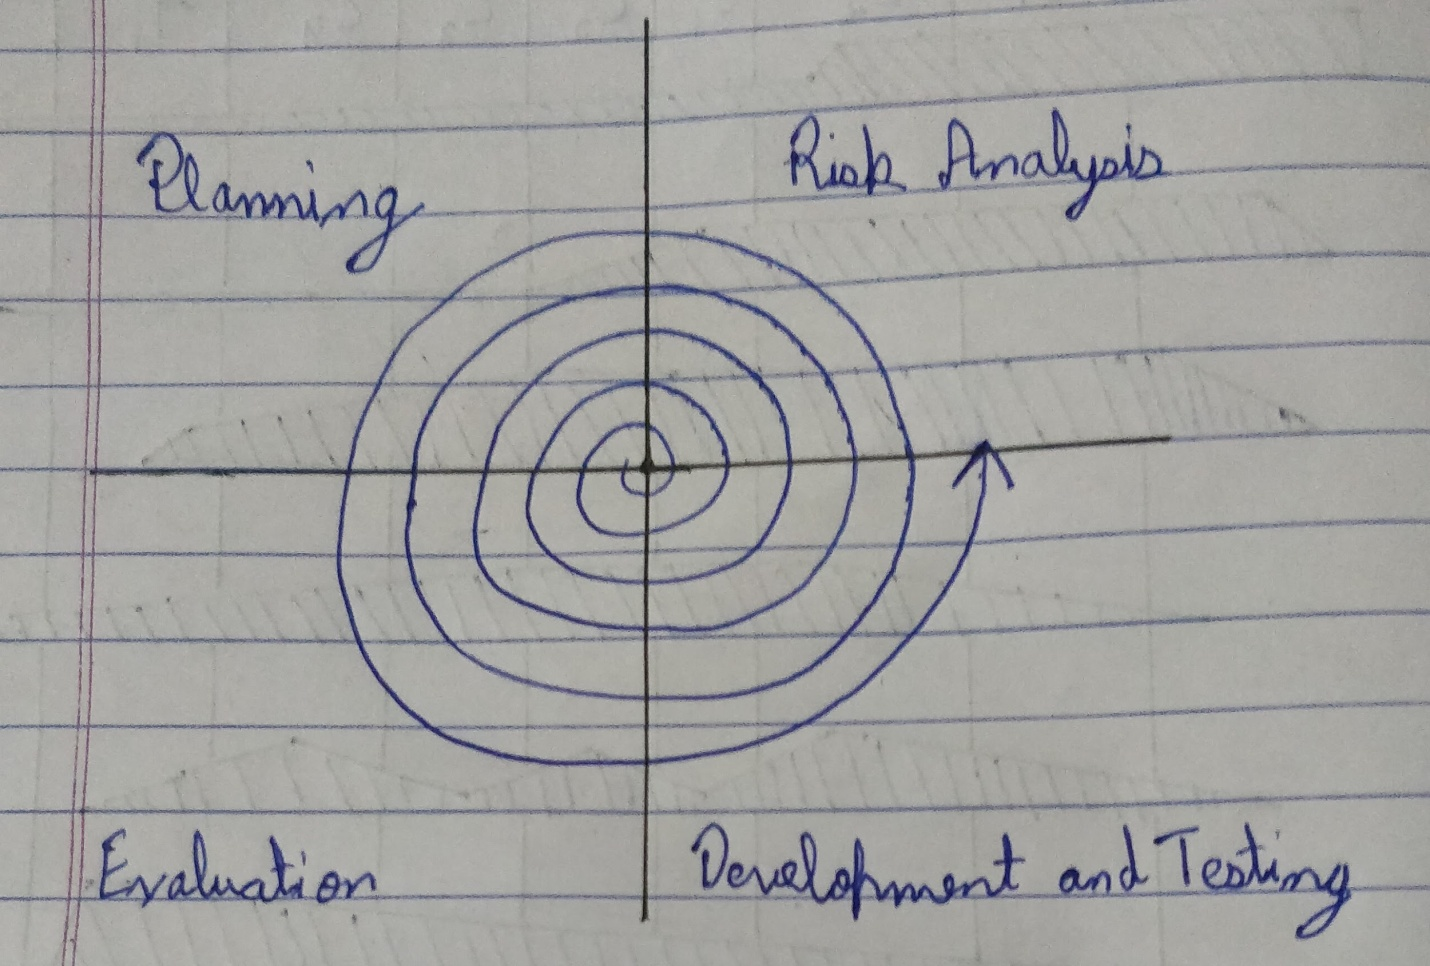 Planning
Risk Analysis
Evaluation
Development and Testing